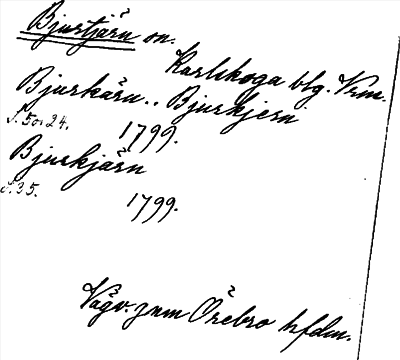 Bjurtjärn on.
Karlskoga blg. Vrm.
Bjurkärn.. Bjurkjern
s. 5 o. 24. 1799.
Bjurkjärn
s. 35. 1799.
Vägv. zum Örebro hfdm.